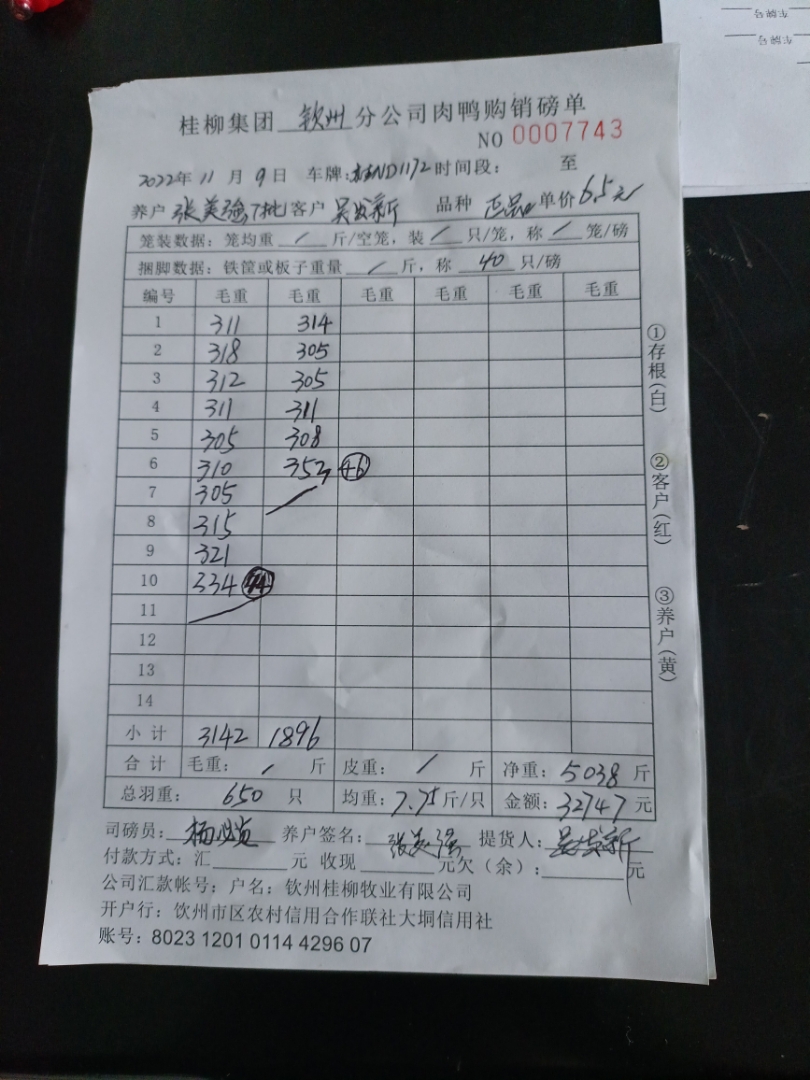 车牌号
车牌号
桂柳集团 钦州 分公司肉鸭购销磅单
NO 0007743
2022年 11 月 9 日 车牌:桂ND1172 时间段: 至
养户 张美强7批 客户 品种 正品 单价 6.5元
笼装数据:笼均重 / 斤/空笼,装 / 只/笼,称 / 笼/磅
捆脚数据:铁筐或板子重量 / 斤,称 40 只/磅
编号 毛重 毛重 毛重 毛重 毛重 毛重
1 311 314
2 318 305
3 312 305
4 311 311
5 305 308
6 310 352 46
7 305
8 315
9 321
10 334 44
11
12
13
14
小计 3142 1896
合计 毛重: / 斤 皮重: / 斤 净重: 5038 斤
总羽重: 650 只 均重: 7.75 斤/只 金额: 32747 元
司磅员: 养户签名: 张美强 提货人:
付款方式:汇 元 收现 元欠(余): 元
公司汇款帐号:户名:钦州桂柳牧业有限公司
开户行:钦州市区农村信用合作联社大垌信用社
账号:8023 1201 0114 4296 07
①存根(白)
②客户(红)
③养户(黄)